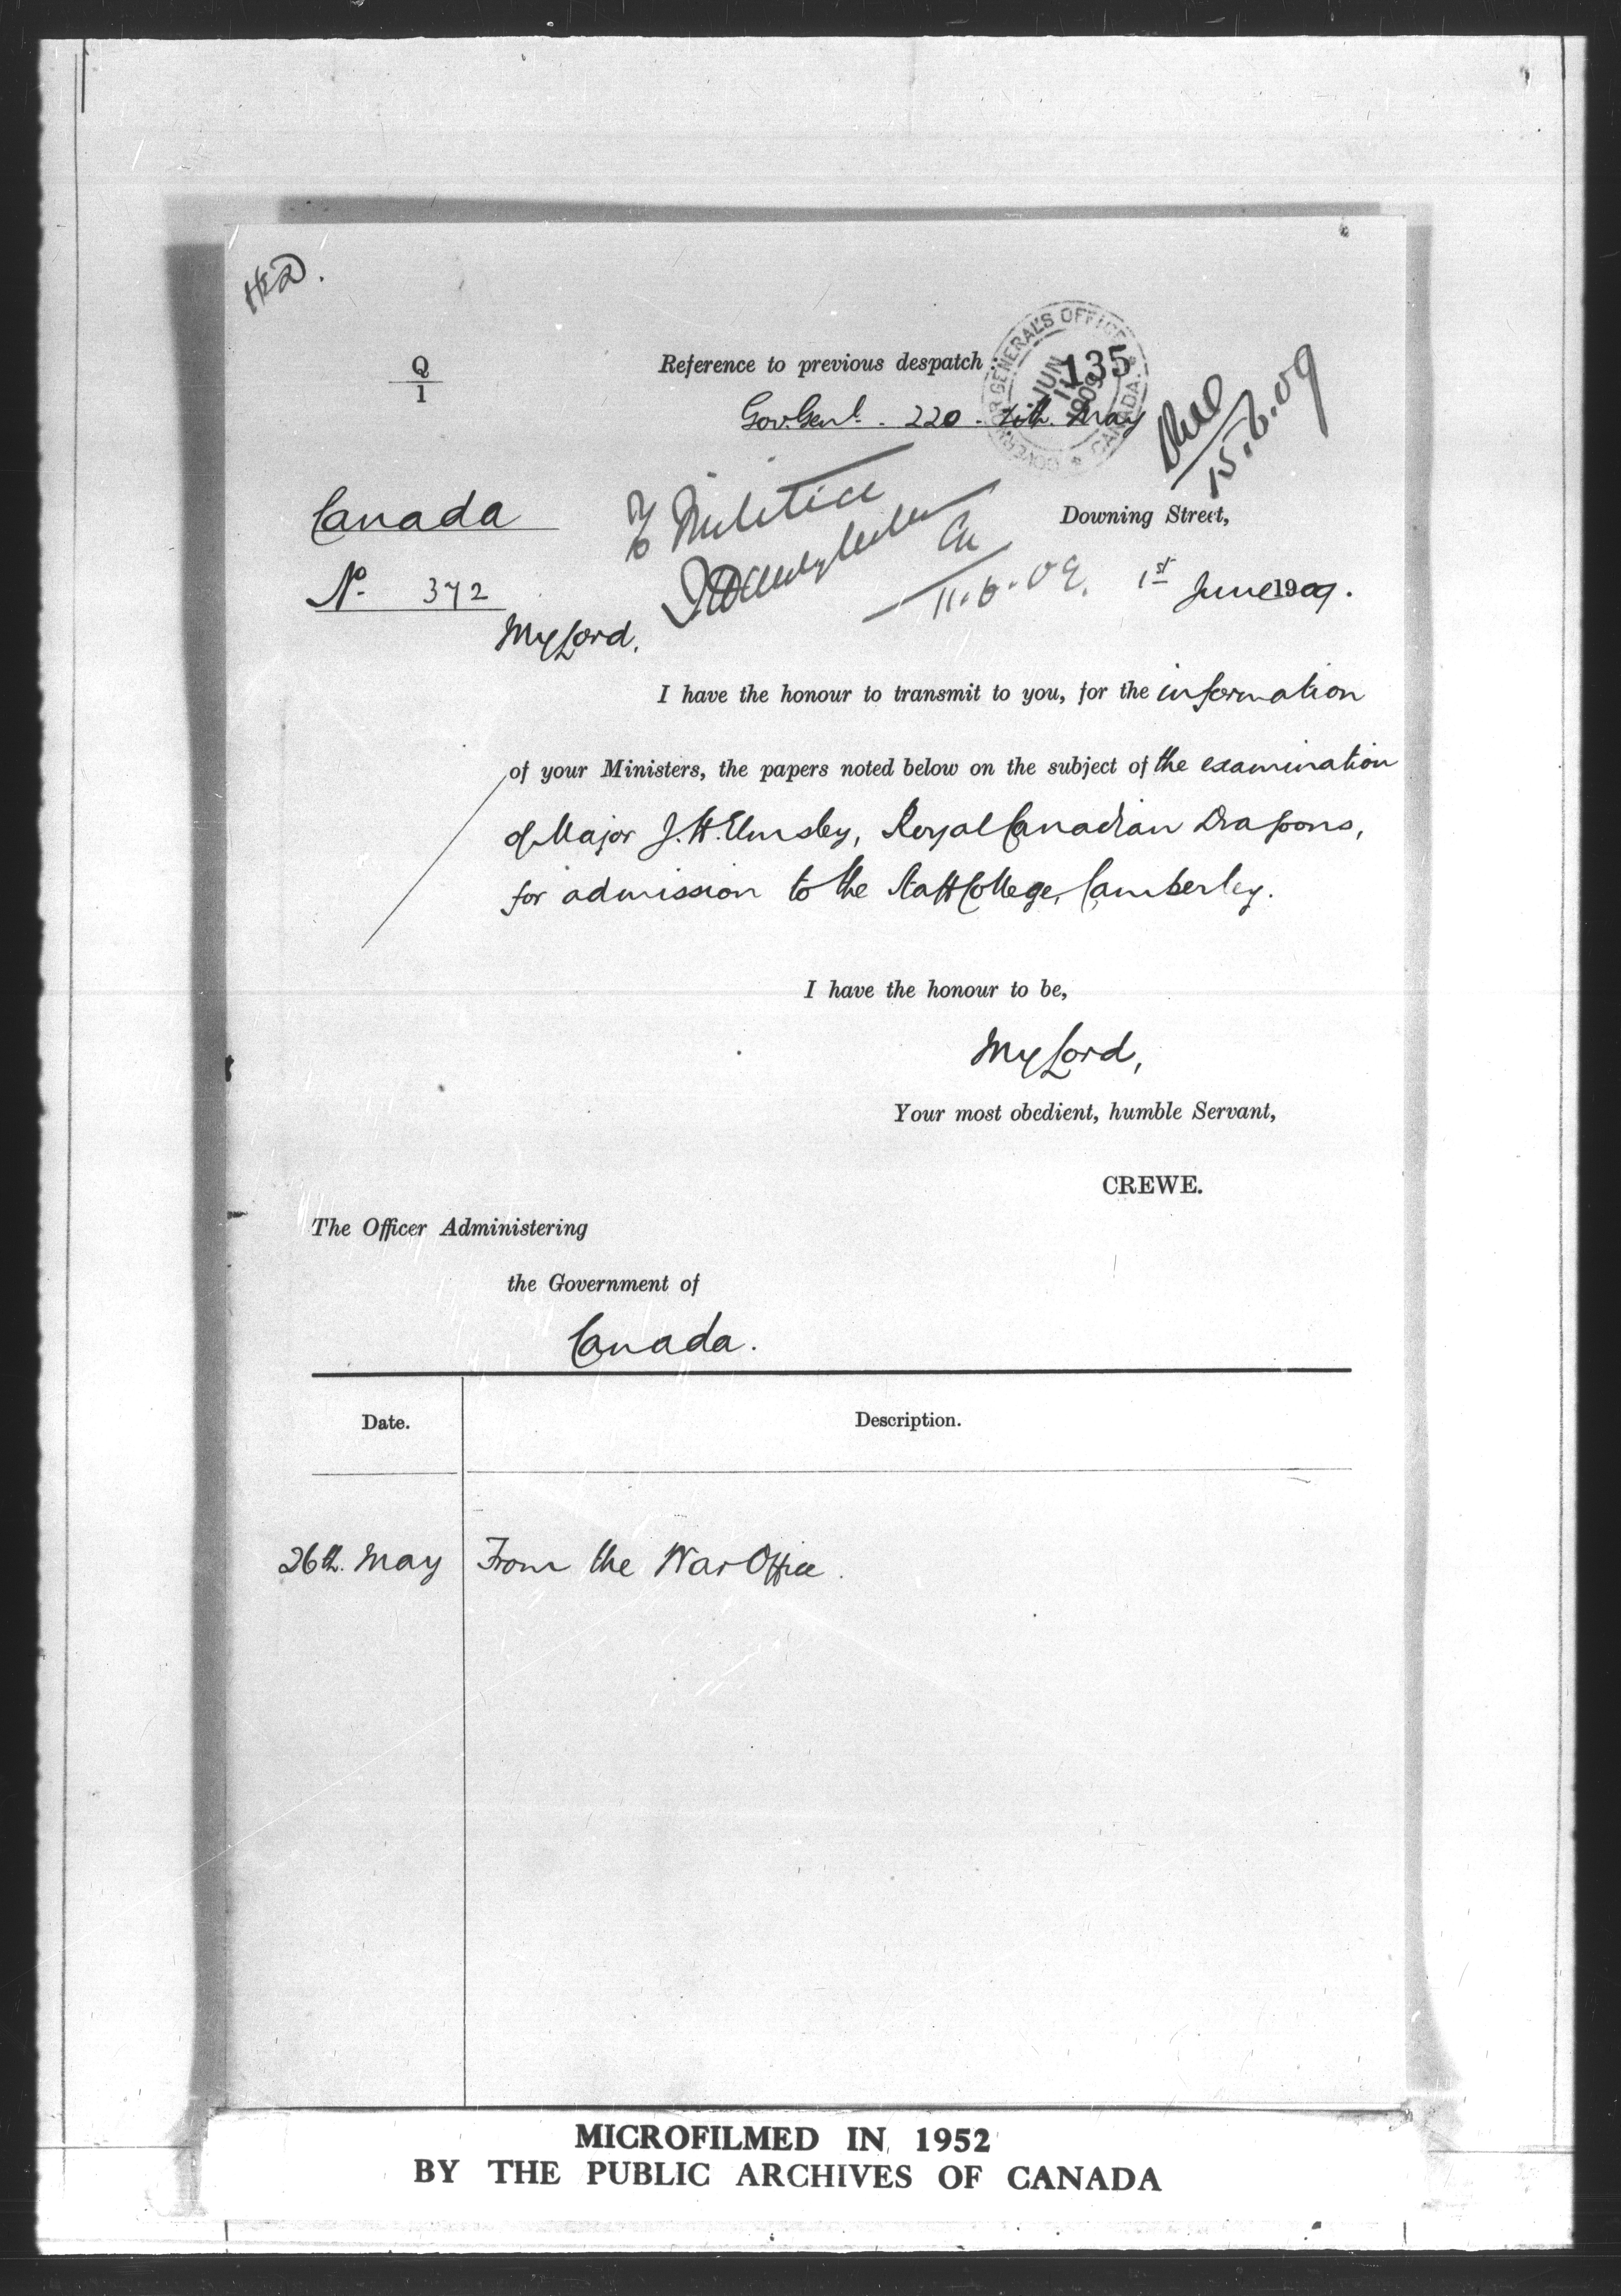 Q
1
Reference to previous despatch:
135
GOVERNOR GENERAL'S OFFICE
CANADA
JUN 11 1909
Gov. Genl. 220 May
15.6.09
Canada
To Militia
Downing Street,
No. 372
11.6.09.
1st June 1909.
My Lord,
I have the honour to transmit to you, for the information
of your Ministers, the papers noted below on the subject of the examination
of Major J.H. Elmsley, Royal Canadian Dragoons,
for admission to the Staff College, Camberley.
I have the honour to be,
My Lord,
Your most obedient, humble Servant,
CREWE.
The Officer Administering
the Government of
Canada.
Date.
Description.
26th. May
From the War Office.
MICROFILMED IN 1952
BY THE PUBLIC ARCHIVES OF CANADA